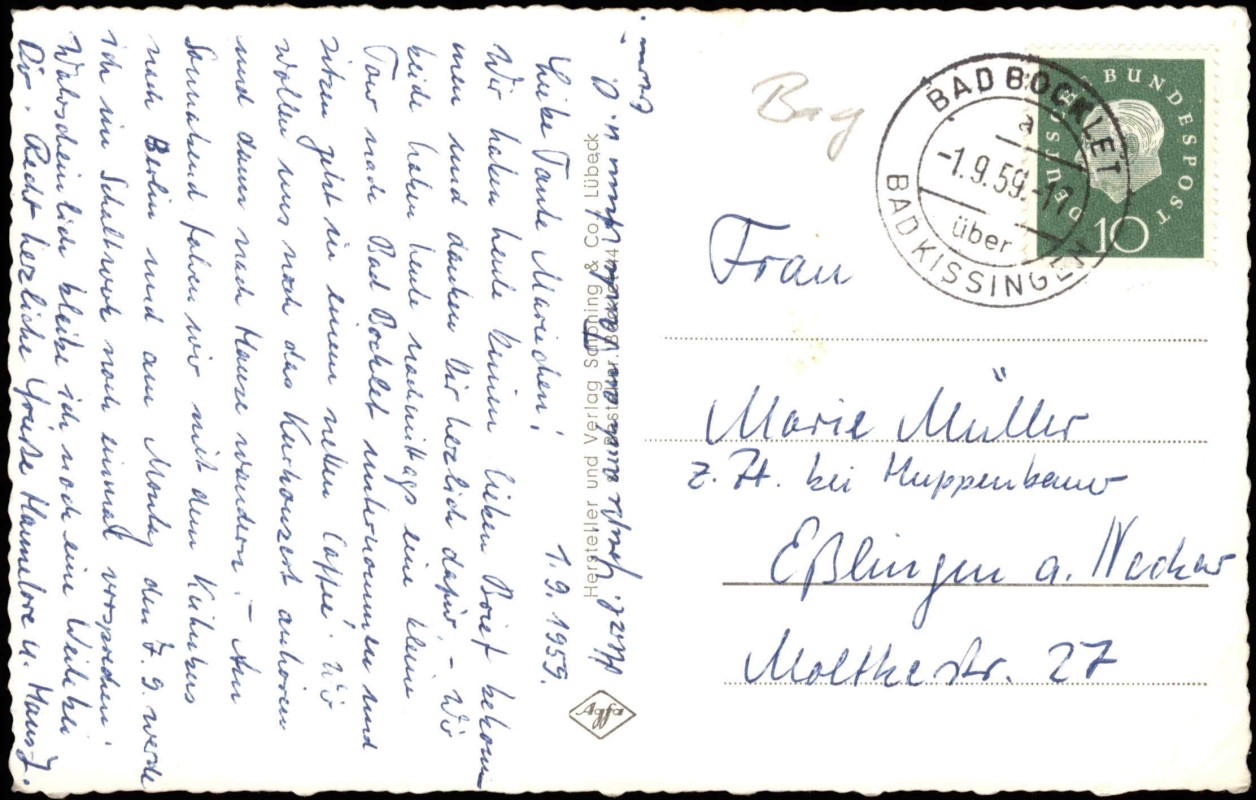 1. 9. 1959.
Liebe Tante Mariechen!
Wir haben heute Deinen lieben Brief bekom-
men und danken Dir herzlich dafür. – Wir
beide haben heute nachmittags eine kleine
Tour nach Bad Bocklet unternommen und
sitzen jetzt in einem netten Caffé. Wir
wollen uns noch das Kurkonzert anhören
und dann nach Hause wandern. – Am
Sonnabend fahren wir mit den
nach Berlin und am Montag den 7. 9. werde
ich im noch einmal vorsprechen.
Wahrscheinlich bleibe ich noch eine Weile bei
Dir. Recht herzliche Grüße Hannelore u. Hans J.
Herzl. Grüße am Tanz
Hersteller und Verlag Schöning & Co., Lübeck
Agfa
Bag
BAD BOCKLET
a
-1.9.59.-17
über
BAD KISSINGEN
DEUTSCHE BUNDESPOST
10
Frau
Marie Müller
z. Zt. bei Huppenbauer
Eßlingen a. Neckar
Moltkestr. 27